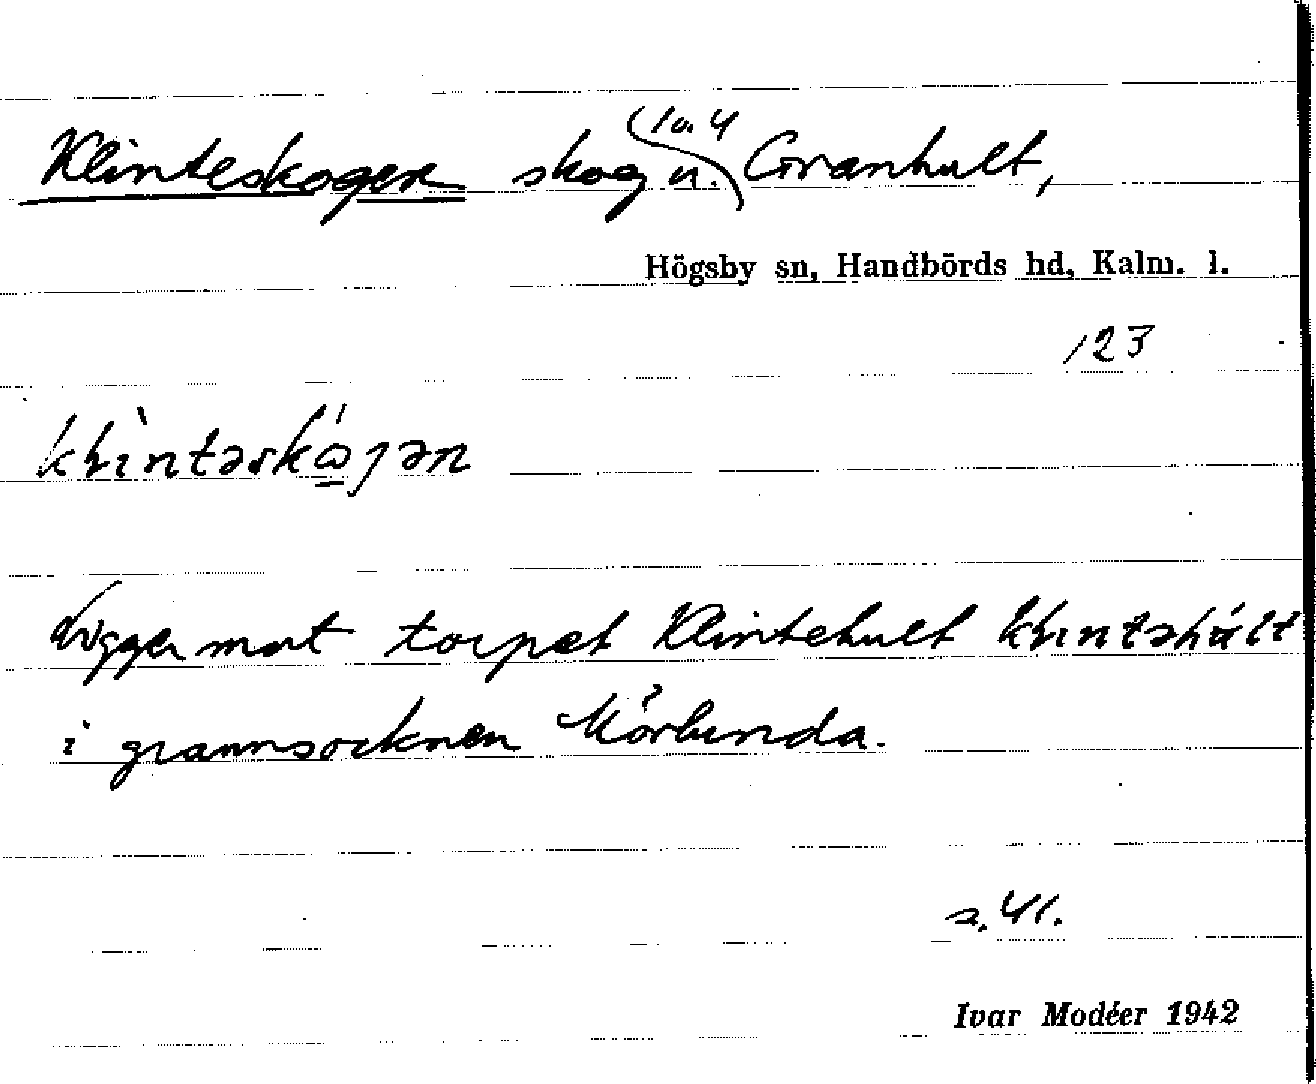 Klinteskogen skog u. (1a. 4) Granhult,
Högsby sn, Handbörds hd, Kalm. l.
123
Ligger mot torpet Klintehult
i grannsocknen Mörlunda.
s. 41.
Ivar Modéer 1942